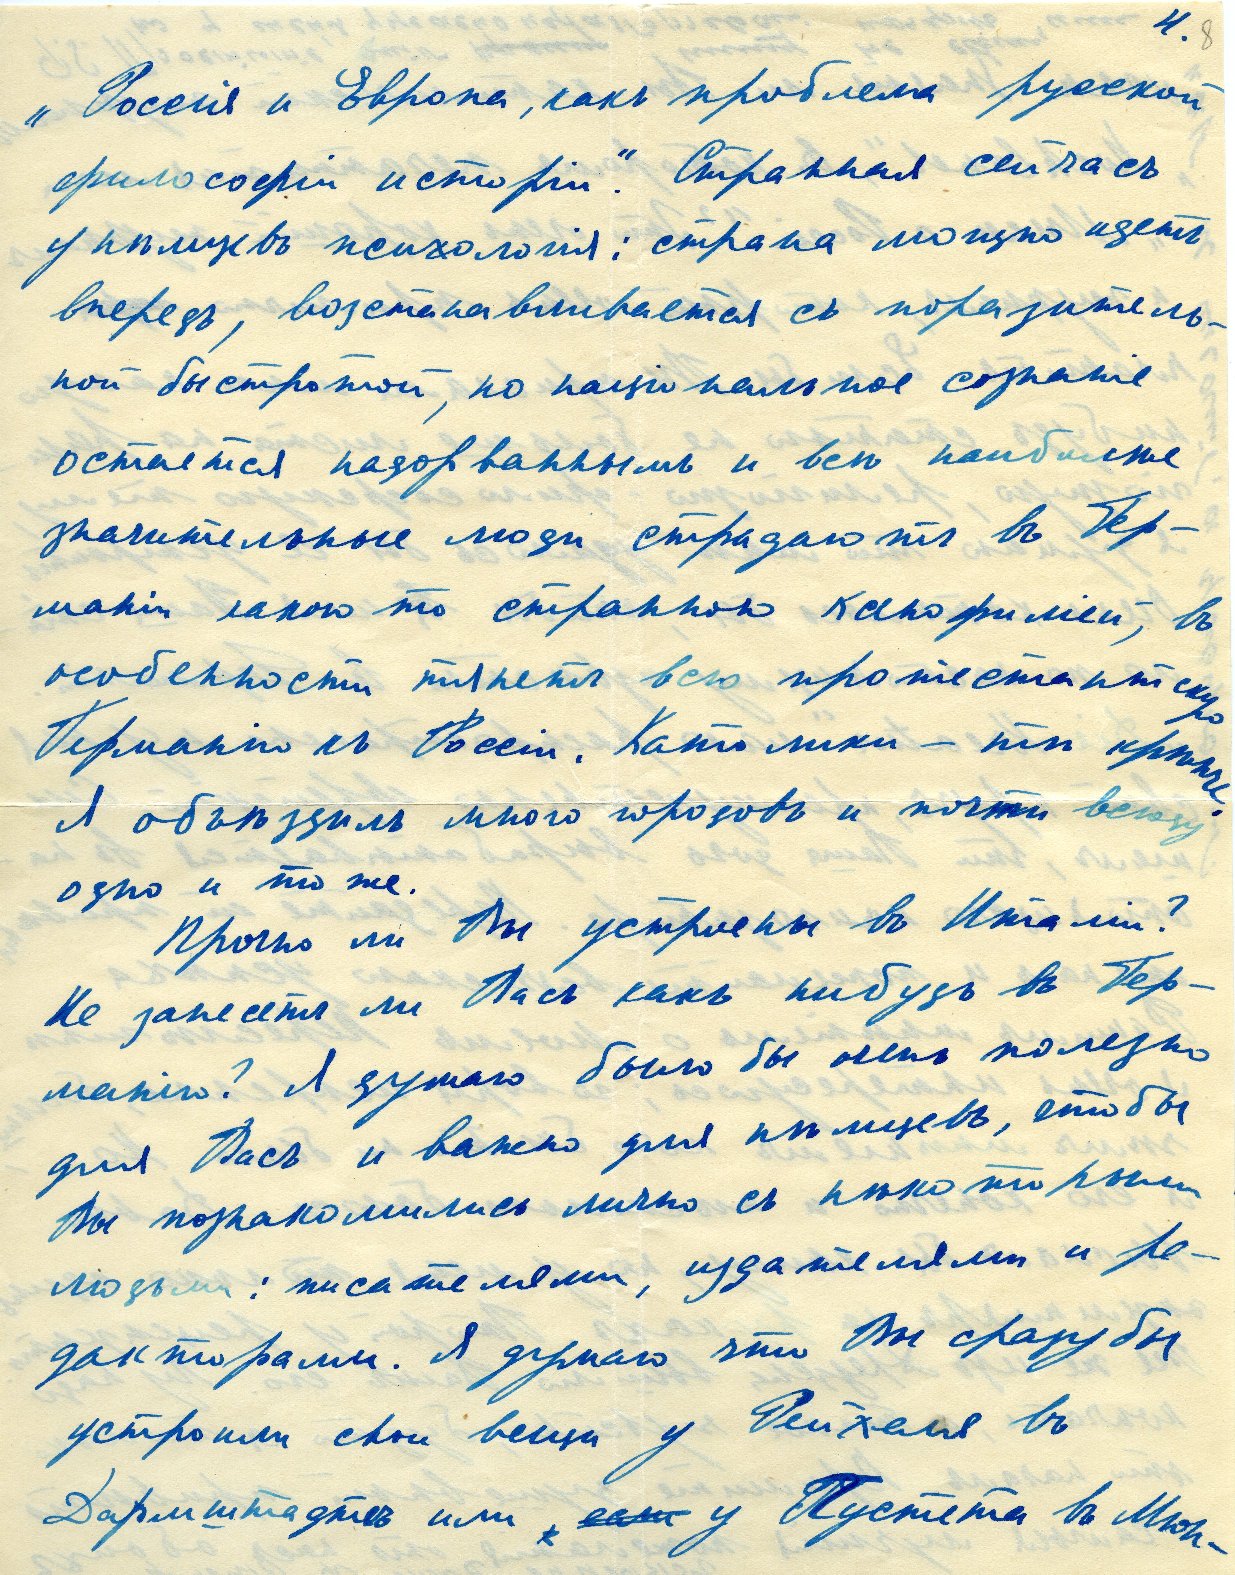 4. 8
„Россія и Европа, какъ проблема русской
философіи исторіи“. Странная сейчасъ
у нѣмцевъ психологія: страна мощно идетъ
впередъ, возстанавливается съ поразитель-
ной быстротой, но національное сознаніе
остается надорваннымъ и всѣ наиболѣе
значительные люди страдаютъ въ Гер-
маніи какою то странною ксенофиліей, въ
особенности тянетъ всю протестантскую
Германію къ Россіи. Католики — тѣ крѣпче.
Я объѣздилъ много городовъ и почти всюду
одно и то же.
Прочно ли Вы устроены въ Италіи?
Не занесетъ ли Васъ какъ нибудь въ Гер-
манію? Я думаю было бы очень полезно
для Васъ и важно для нѣмцевъ, чтобы
Вы познакомились лично съ нѣкоторыми
людьми: писателями, издателями и ре-
дакторами. Я думаю что Вы сразу бы
устроили свои вещи у Рейхеля въ
Дармштадтѣ или у Пустета въ Мюн-